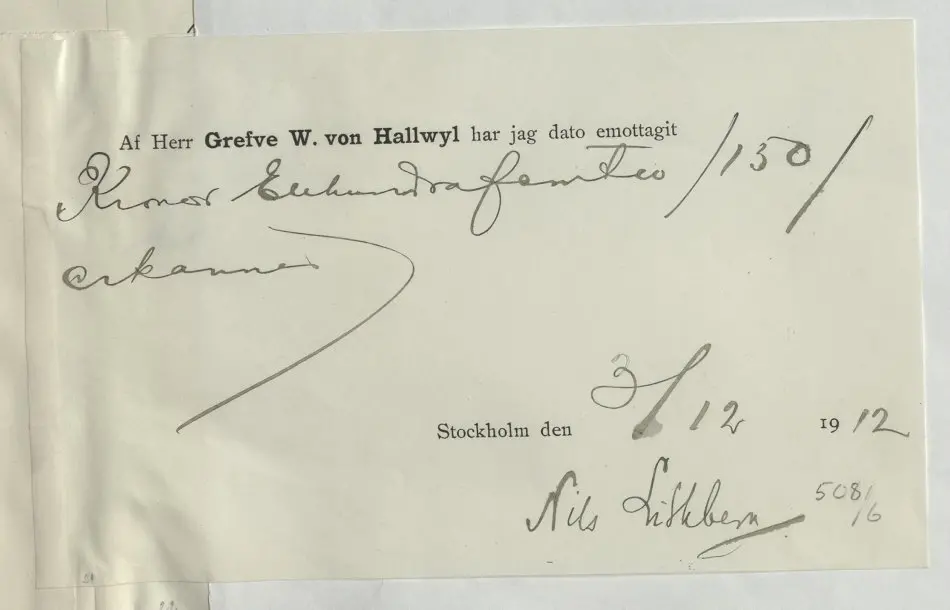 Af Herr Grefve W. von Hallwyl har jag dato emottagit
Kronor Etthundrafemtio /150/
erkännes
Stockholm den 3/12 1912
Nils
508/6